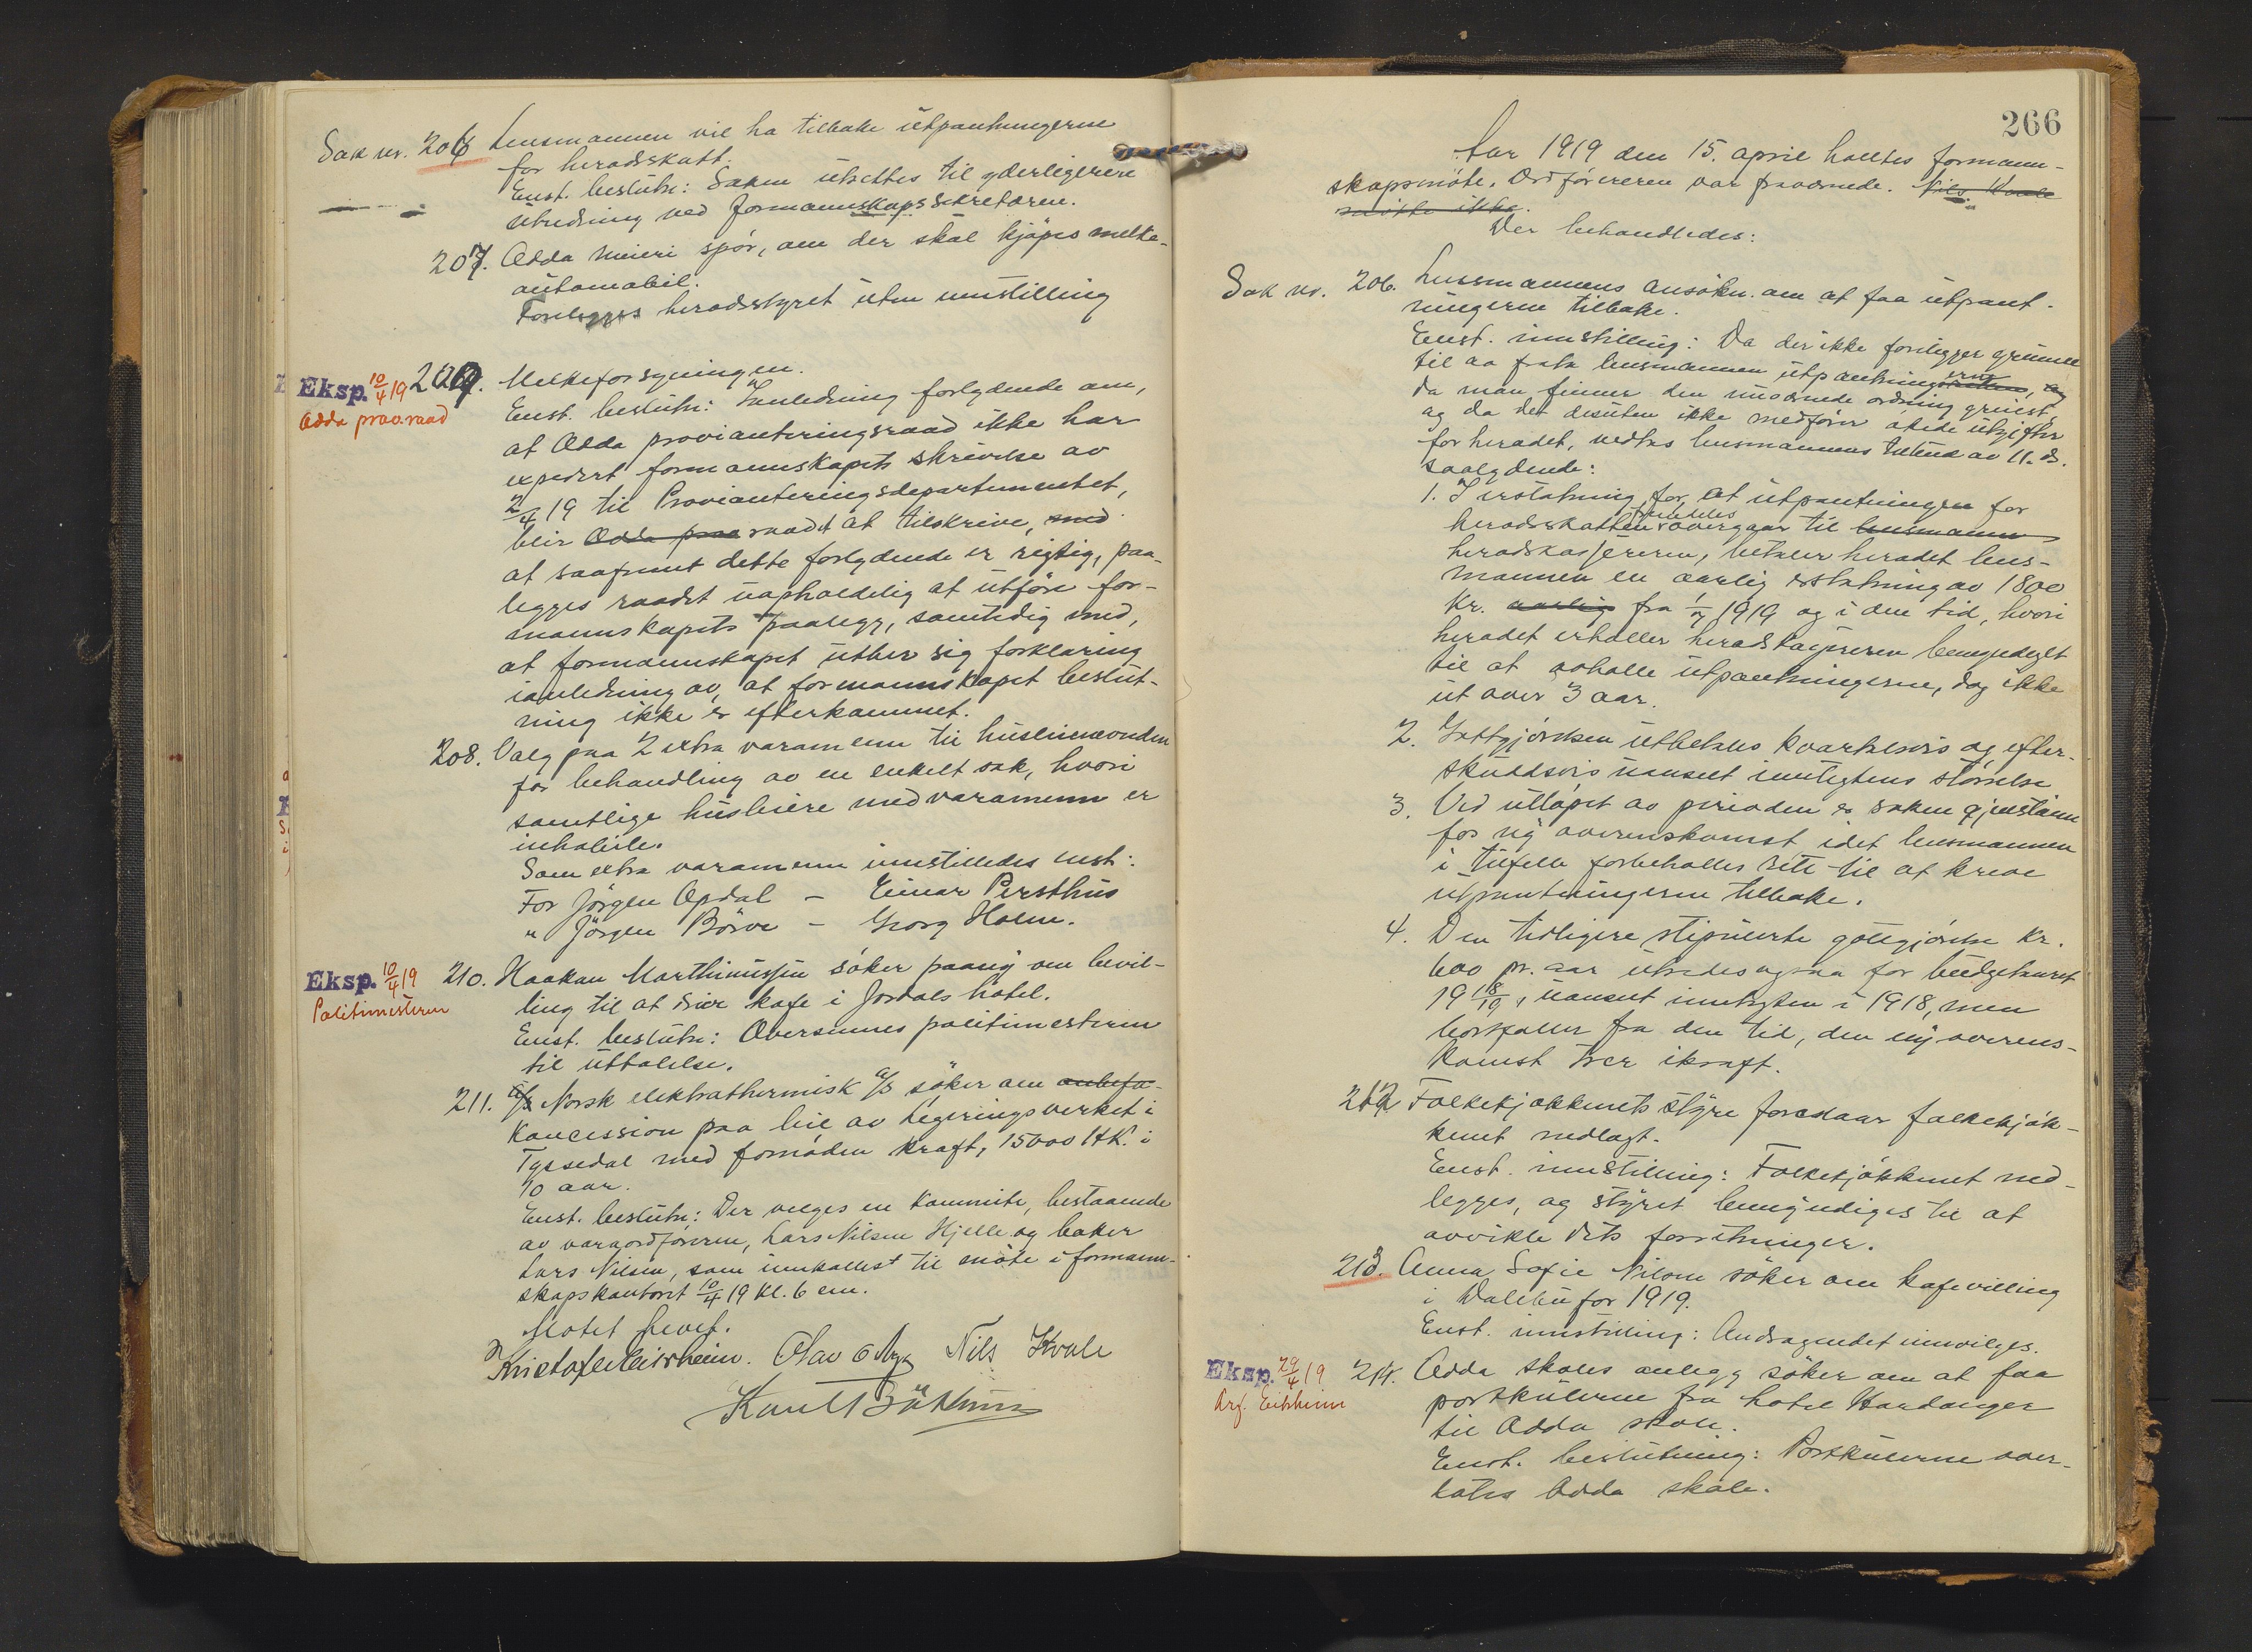 Sak nr. 206 Lensmannen vil ha tilbake utpantningerne
for heradsskatt.
Enst. beslutn: Saken utsettes til yderligerere
utredning ved formannskapssekretæren.
207. Odda meieri spör, om der skal kjöpes melke-
automobil.
Forelegges heradsstyret uten innstilling
Eksp. 10/4 19 209. Melkeforsyningen.
Odda prov.raad
Enst. beslutn: I anledning forlydende om,
at Odda provianteringsraad ikke har
expedert formannskapets skrivelse av
2/4 19 til Provianteringsdepartementet,
blir Odda prov raadet at tilskrive, med
at saafremt dette forlydende er rigtig, paa-
legges raadet uopholdelig at utföre for-
mannskapets paalegg, samtidig med,
at formannskapet utber sig forklaring
ianledning av, at formannskapet beslut-
ning ikke er efterkommet.
208. Valg paa 2 extra varamenn til husleienevnden
for behandling av en enkelt sak, hvori
samtlige husleiere med varamenn er
inhabile.
Som extra varamenn innstilledes enst:
For Jörgen Opdal - Einar Persthus
" Jörgen Börve - Georg Holm.
Eksp. 10/4 19 210. Haakon Marthinussen söker paany om bevil-
Politimesteren
ling til at drive kafe i Jordals hotel.
Enst. beslutn: Oversennes politimesteren
til uttalelse.
211. A/S Norsk elektrothermisk A/S söker om anbefa-
koncession paa leie av Legeringsverket i
Tyssedal med fornöden kraft, 15000 HK. i
10 aar.
Enst. beslutn: Der velges en komite, bestaaende
av varaordföreren, Lars Nilsen Hjelle og baker
Lars Nilsen, som innkalles til möte i formann-
skapskontoret 10/4 19 kl. 6 em.
Mötet hevet.
Kristofer Eirsheim. Olav Nils Kvale
Knut
266
Aar 1919 den 15. april holltes formann-
skapsmöte. Ordföreren var fraværende. Nils Kvale
mötte ikke.
Der behandledes:
Sak nr. 206. Lensmannens ansökn. om at faa utpant-
ningerne tilbake.
Enst. innstilling: Da der ikke foreligger grunn
til aa frata lensmannen utpantningerne, og
da man finner den nuværende ordning greiest,
og da det desuten ikke medförer ökede utgifter
for heradet, vedtas lensmannens tilbud av 11. ds.
saalydende:
1. I erstatning for, at utpantningen for
heradsskatten fremdeles overgaar til lensmannen
heradskasjereren, betaler heradet lens-
mannen en aarlig erstatning av 1800
kr. aarlig fra 1/7 1919 og i den tid, hvori
heradet erholler heradskasjereren bemyndiget
til at avholle utpantningerne, dog ikke
ut over 3 aar.
2. Gottgjörelsen utbetales kvartalsvis og efter-
skuddsvis uanset inntegtens störrelse
3. Ved utlöpet av perioden er saken gjenstann
for ny overenskomst idet lensmannen
i tilfelle forbeholles rett til at kreve
utpantningerne tilbake.
4. Den tidligere stipulerte gotgjörelse kr.
600 pr. aar utredes ogsaa for budgetaaret
1918/19, uanset inntegten i 1918, men
bortfaller fra den tid, den ny overens-
komst trer ikraft.
212 Folkekjökkenets styre foreslaar folkekjök-
kenet nedlagt.
Enst. innstilling: Folkekjökkenet ned-
legges, og styret bemyndiges til at
avvikle dets forretninger.
213. Anna Sofie Nilsen söker om kafevilling
i Dalebu for 1919.
Enst. innstilling: Andragendet innvilges.
Eksp. 29/4 19 214. Odda skoles anlegg söker om at faa
Arf. Eitrheim
portkulerne fra hotel Hardanger
til Odda skole.
Enst. beslutning: Portkulerne over-
lates Odda skole.